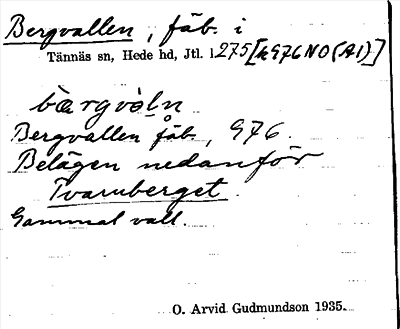 Bergvallen, fäb. i
Tännäs sn, Hede hd, Jtl. 1275[k976NO(A1)]
bærgvàl̥n
Bergvallen fäb., 976.
Belägen nedanför
Tvaruberget.
Gammal vall.
O. Arvid Gudmundson 1935.